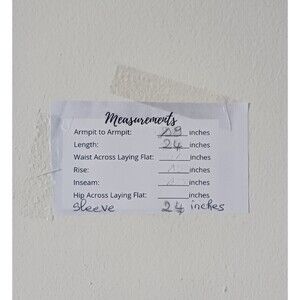 Measurements
Armpit to Armpit: inches
Length: 24 inches
Waist Across Laying Flat: inches
Rise: inches
Inseam: inches
Hip Across Laying Flat: inches
Sleeve 24 inches